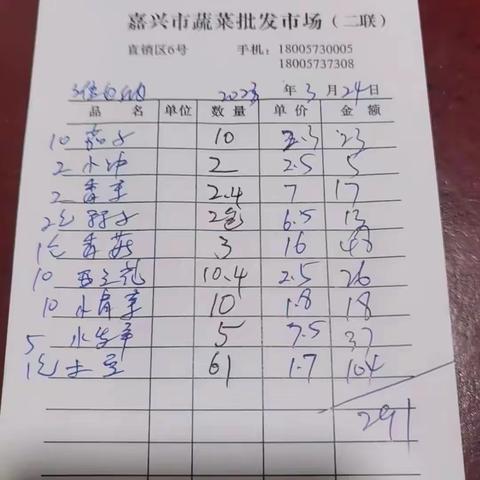 嘉兴市蔬菜批发市场（二联）
直销区6号 手机：18005730005
18005737308
2023 年 3 月 24 日
品 名 单位 数 量 单 价 金 额
10 茄子 10 2.3 23
2 小冲 2 2.5 5
2 香芋 2.4 7 17
2包 2包 6.5 13
1包 香菇 3 16 48
10 西兰花 10.4 2.5 26
10 水芹 10 1.8 18
5 水发笋 5 7.5 37
1包 土豆 61 1.7 104
291